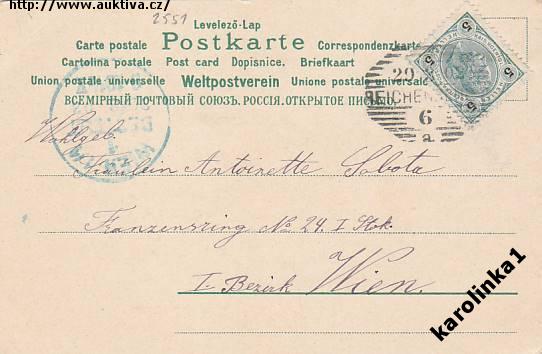 http://www.auktiva.cz/
2551
Levelező-Lap
Carte postale Postkarte Correspondenzkarte
Cartolina postale Post card Dopisnice. Briefkaart
Union postale universelle Weltpostverein Unione postale universale
ВСЕМІРНЫЙ ПОЧТОВЫЙ СОЮЗЪ. РОССІЯ. ОТКРЫТОЕ ПИСЬМО.
5 5 5 5
29
REICHEN
6
a
WIEN
Wohlgeb.
Fräulein Antoinette Sobota
Franzensring No 24. I Stok.
I. Bezirk Wien.
karolinka1